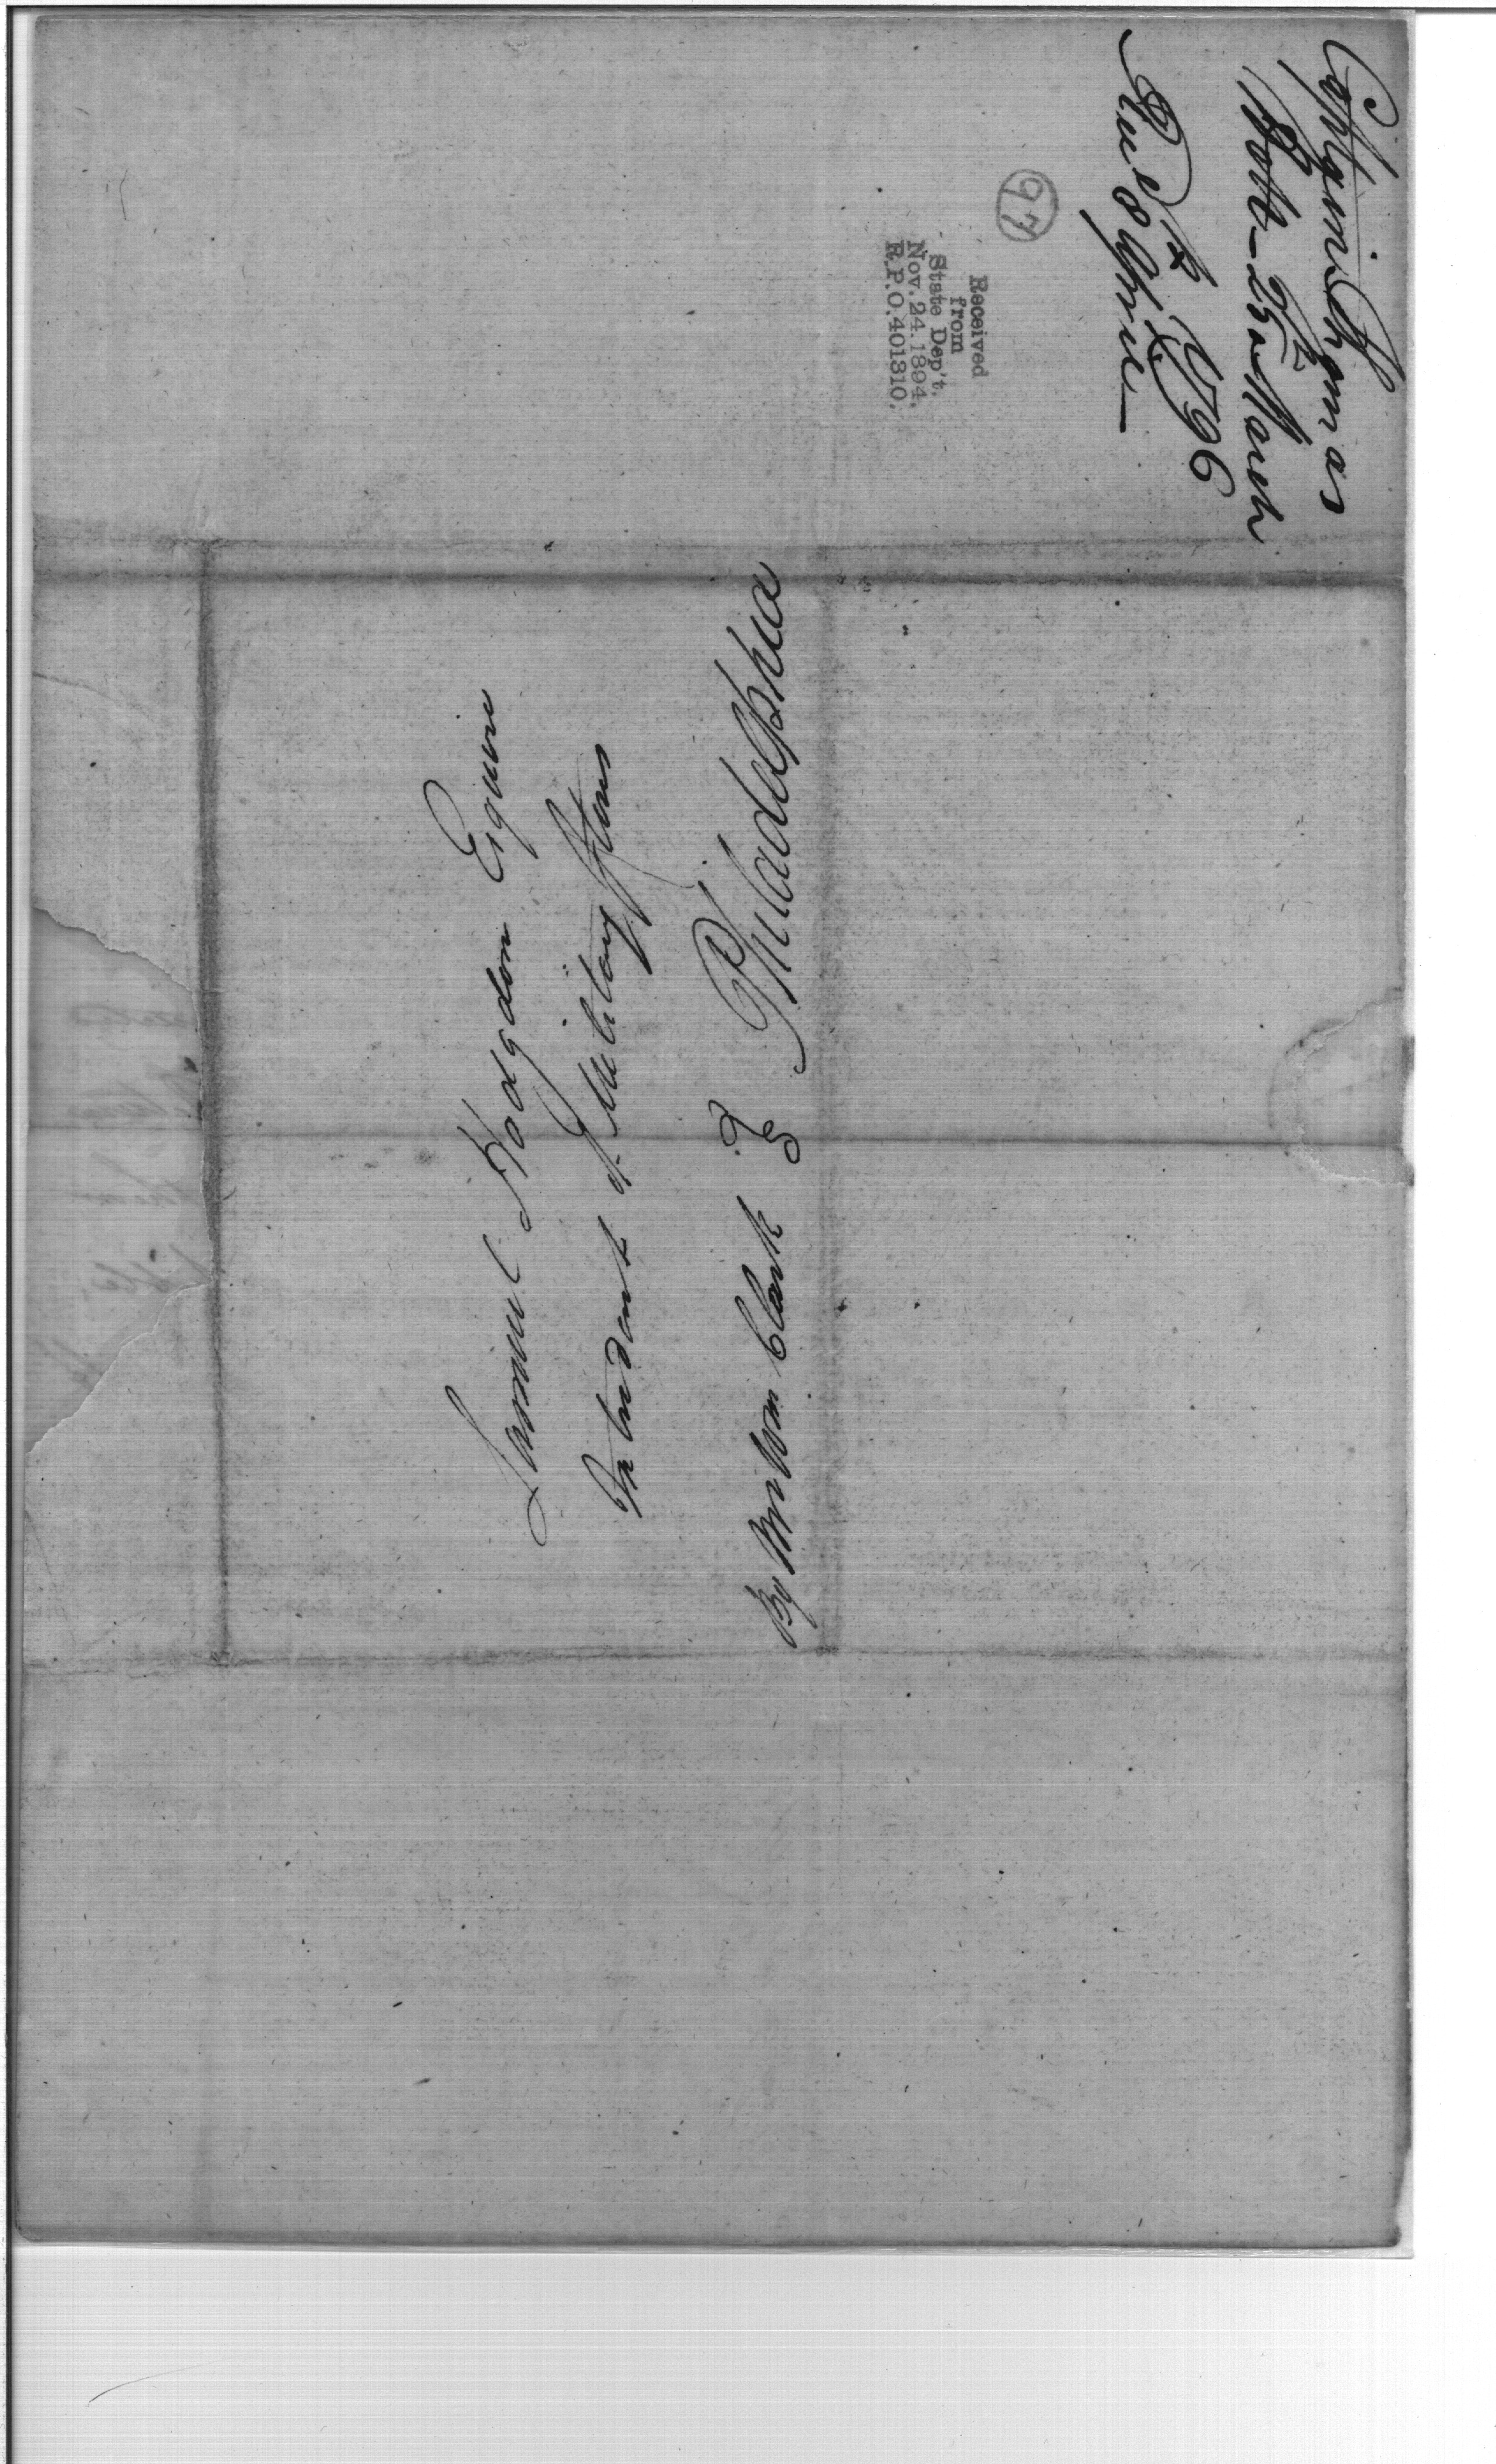 Captain Thomas
Pope 25th March
1796
Recd 8 April
97
Received
from
State Dep't.
Nov.24.1894.
R.P.O.401310.
Samuel Hodgdon Esquire
Intendant of Military Stores
Philadelphia
By Mr Wm Clark